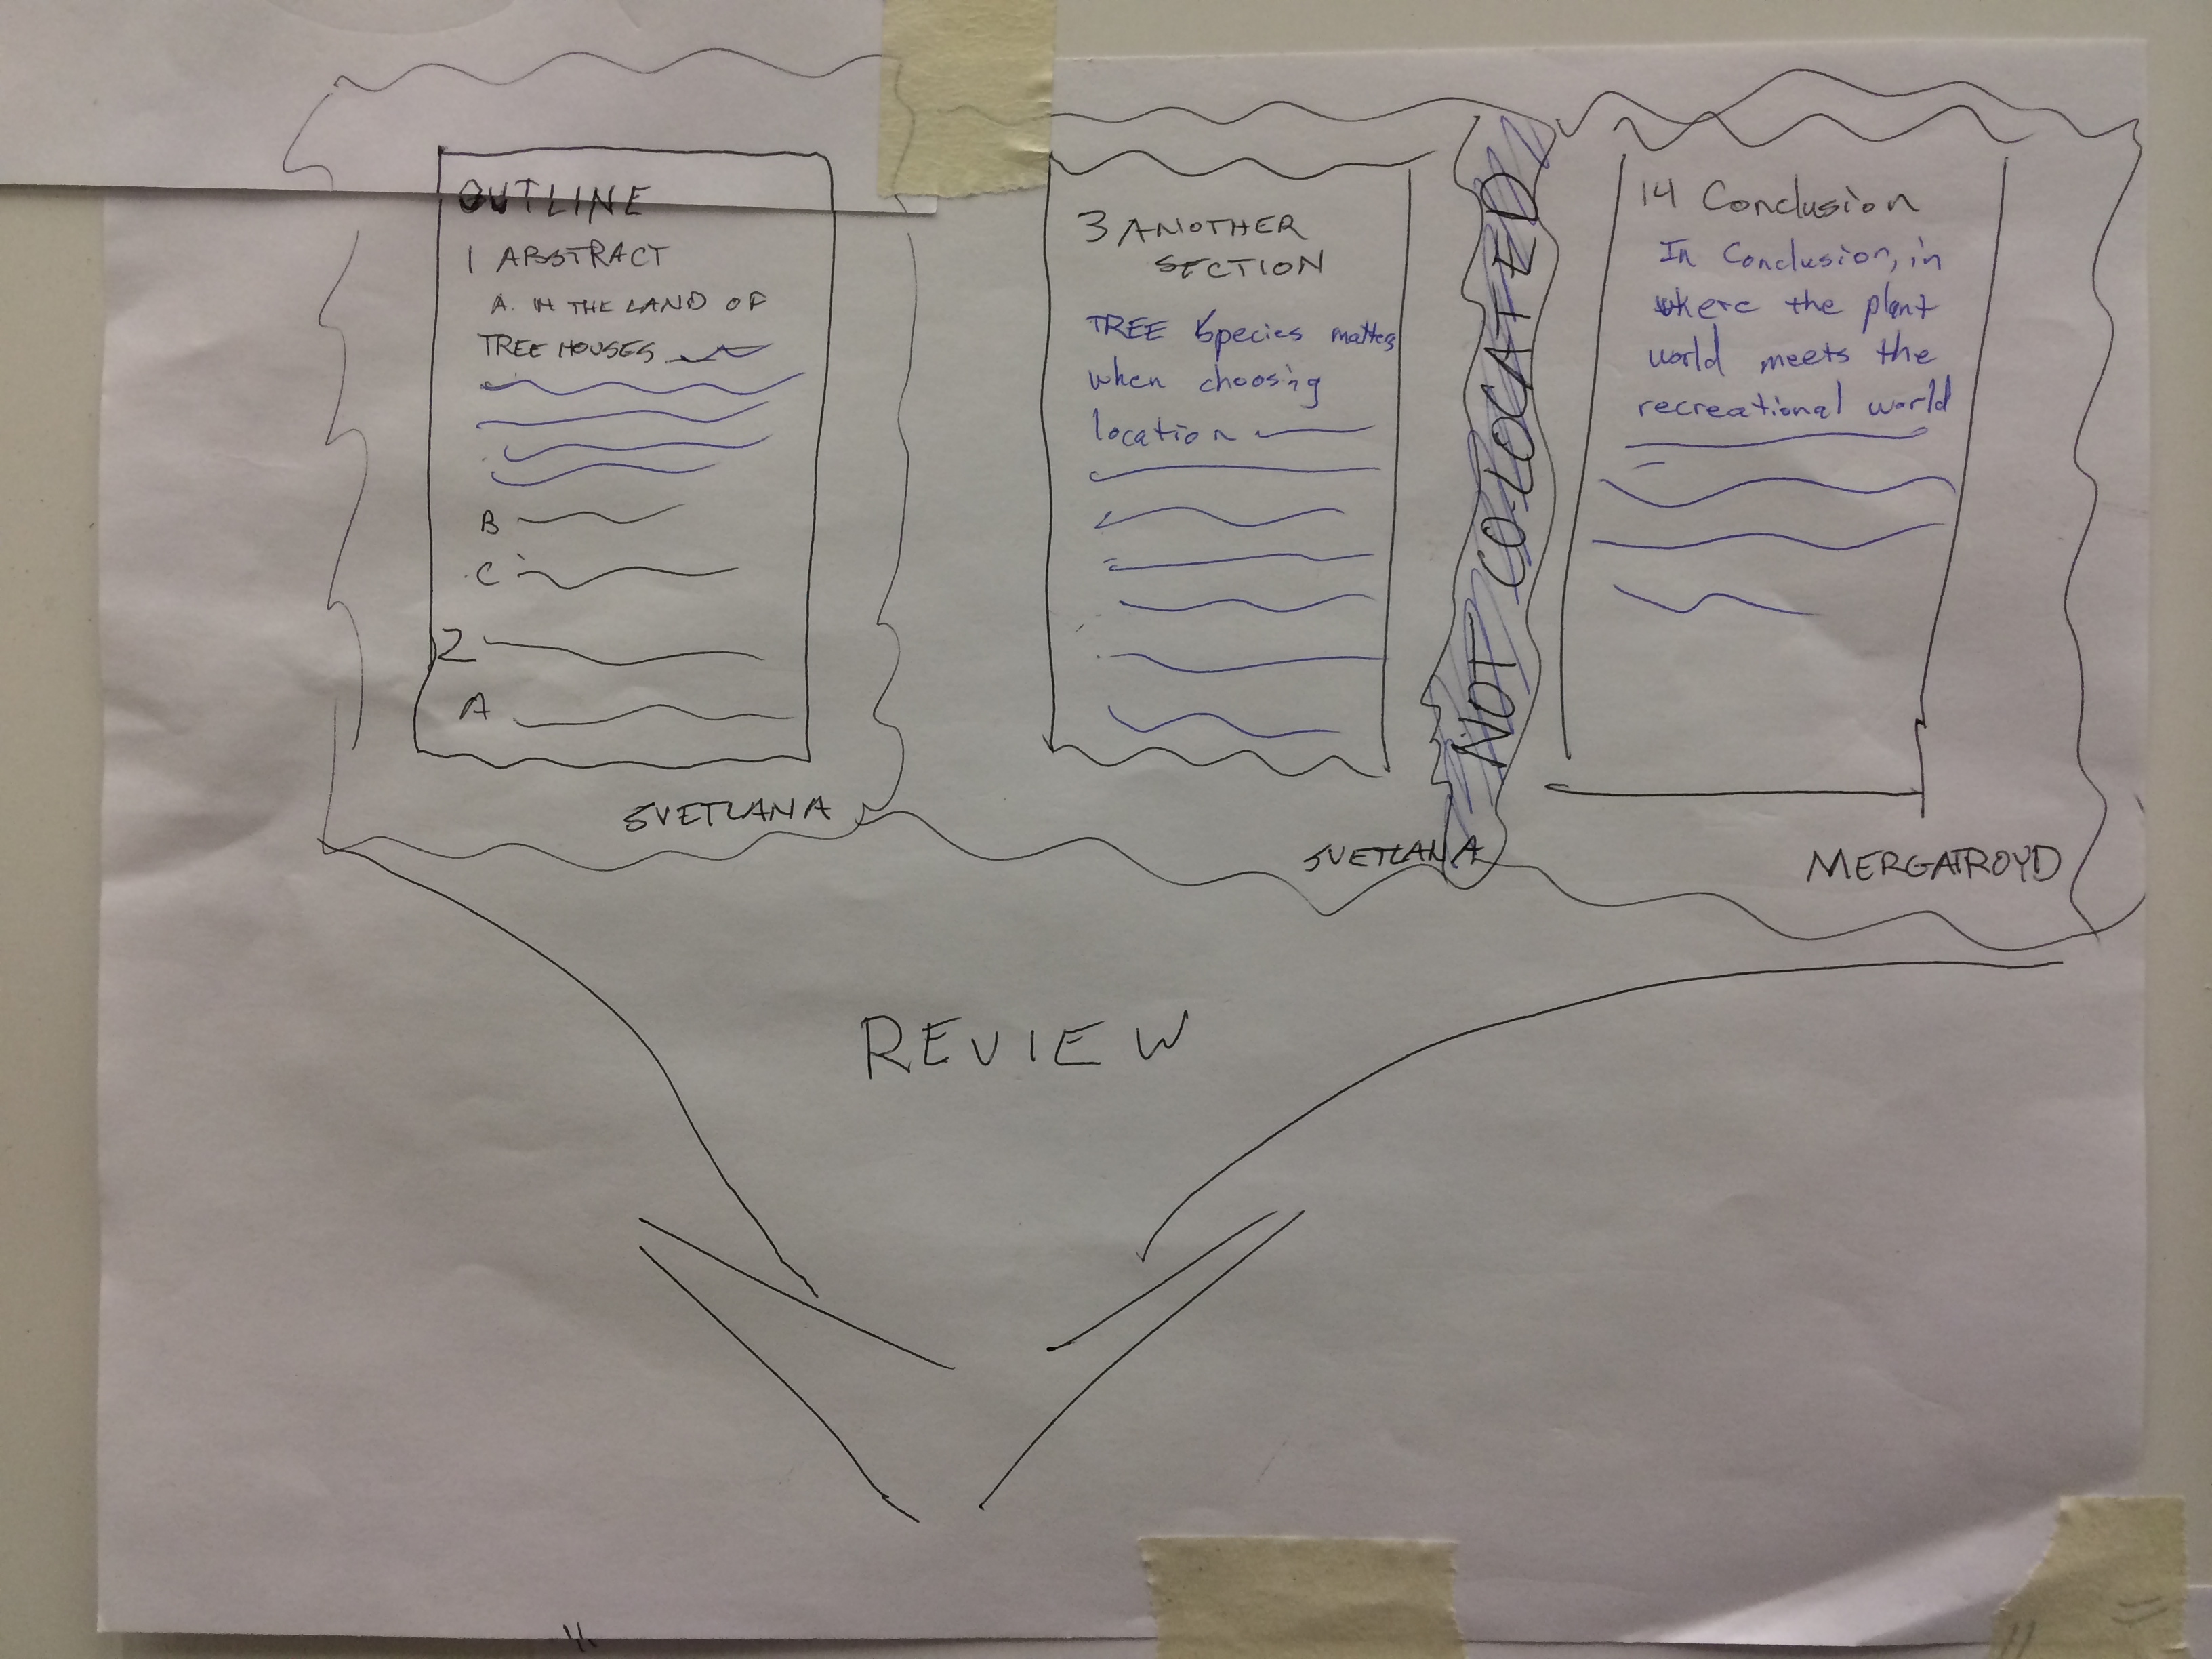 OUTLINE
1 ABSTRACT
A. IN THE LAND OF
TREE HOUSES
B
C
2
A
SVETLANA
3 ANOTHER
SECTION
TREE Species matters
when choosing
location
SVETLANA
NOT CO-LOCATED
14 Conclusion
In Conclusion, in
where the plant
world meets the
recreational world
MERGATROYD
REVIEW